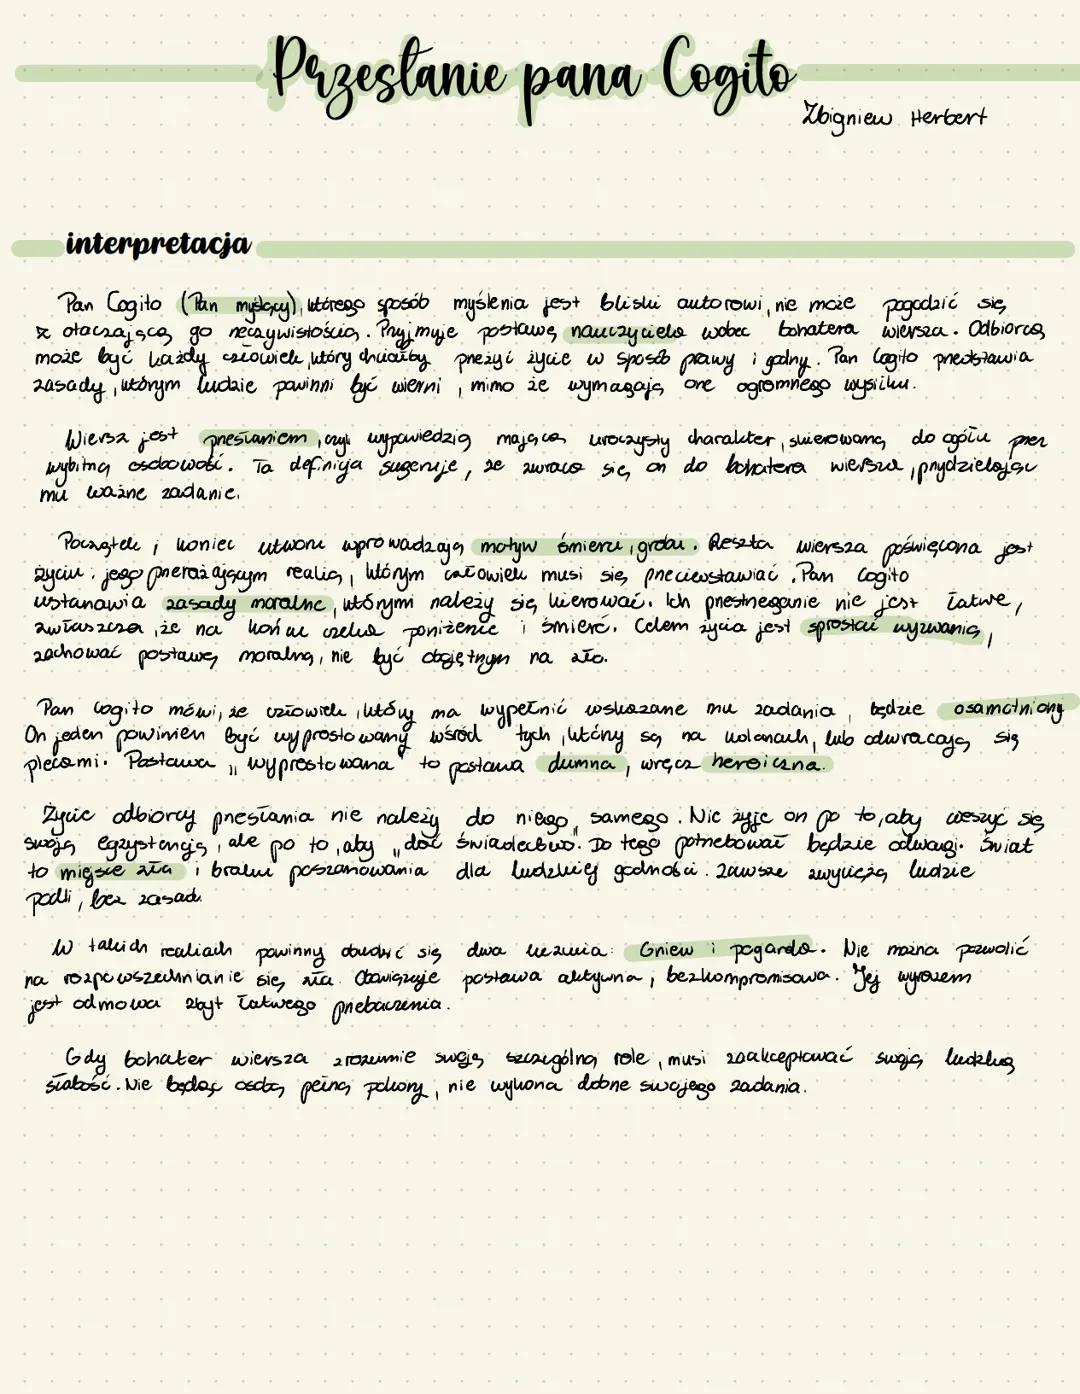 Przesłanie pana Cogito
Zbigniew Herbert
interpretacja
Pan Cogito (Pan myślący), którego sposób myślenia jest bliski autorowi, nie może pogodzić się
z otaczającą go rzeczywistością. Przyjmuje postawę nauczyciela wobec bohatera wiersza. Odbiorcą
może być każdy człowiek, który chciałby przeżyć życie w sposób prawy i godny. Pan Cogito przedstawia
zasady, którym ludzie powinni być wierni, mimo że wymagają one ogromnego wysiłku.
Wiersz jest przesłaniem, czyli wypowiedzią mającą uroczysty charakter, skierowaną do ogółu przez
wybitną osobowość. Ta definicja sugeruje, że zwraca się on do bohatera wiersza, przydzielając
mu ważne zadanie.
Początek i koniec utworu wprowadzają motyw śmierci, grobu. Reszta wiersza poświęcona jest
życiu i jego przerażającym realią, którym człowiek musi się przeciwstawiać. Pan Cogito
ustanawia zasady moralne, którymi należy się kierować. Ich przestrzeganie nie jest łatwe,
zwłaszcza, że na końcu czeka poniżenie i śmierć. Celem życia jest sprostać wyzwanią,
zachować postawę moralną, nie być obojętnym na zło.
Pan Cogito mówi, że człowiek, który ma wypełnić wskazane mu zadania, będzie osamotniony
On jeden powinien być wyprostowany wśród tych, którzy są na kolanach, lub odwracają się
plecami. Postawa "wyprostowana" to postawa dumna, wręcz heroiczna.
Życie odbiorcy przesłania nie należy do niego samego. Nie żyje on po to, aby cieszyć się
swoją egzystencją, ale po to, aby "dać świadectwo. Do tego potrzebował będzie odwagi. Świat
to miejsce zła i braku poszanowania dla ludzkiej godności. Zawsze zwyciężą ludzie
podli, bez zasad.
W takich realiach powinny obudzić się dwa uczucia: Gniew i pogarda. Nie można pozwolić
na rozpowszechnianie się zła. Obowiązuje postawa aktywna, bezkompromisowa. Jej wyrazem
jest odmowa zbyt łatwego przebaczenia.
Gdy bohater wiersza zrozumie swoją szczególną role, musi zaakceptować swoją ludzką
słabość. Nie będąc osobą pełną pokory, nie wykona dobrze swojego zadania.